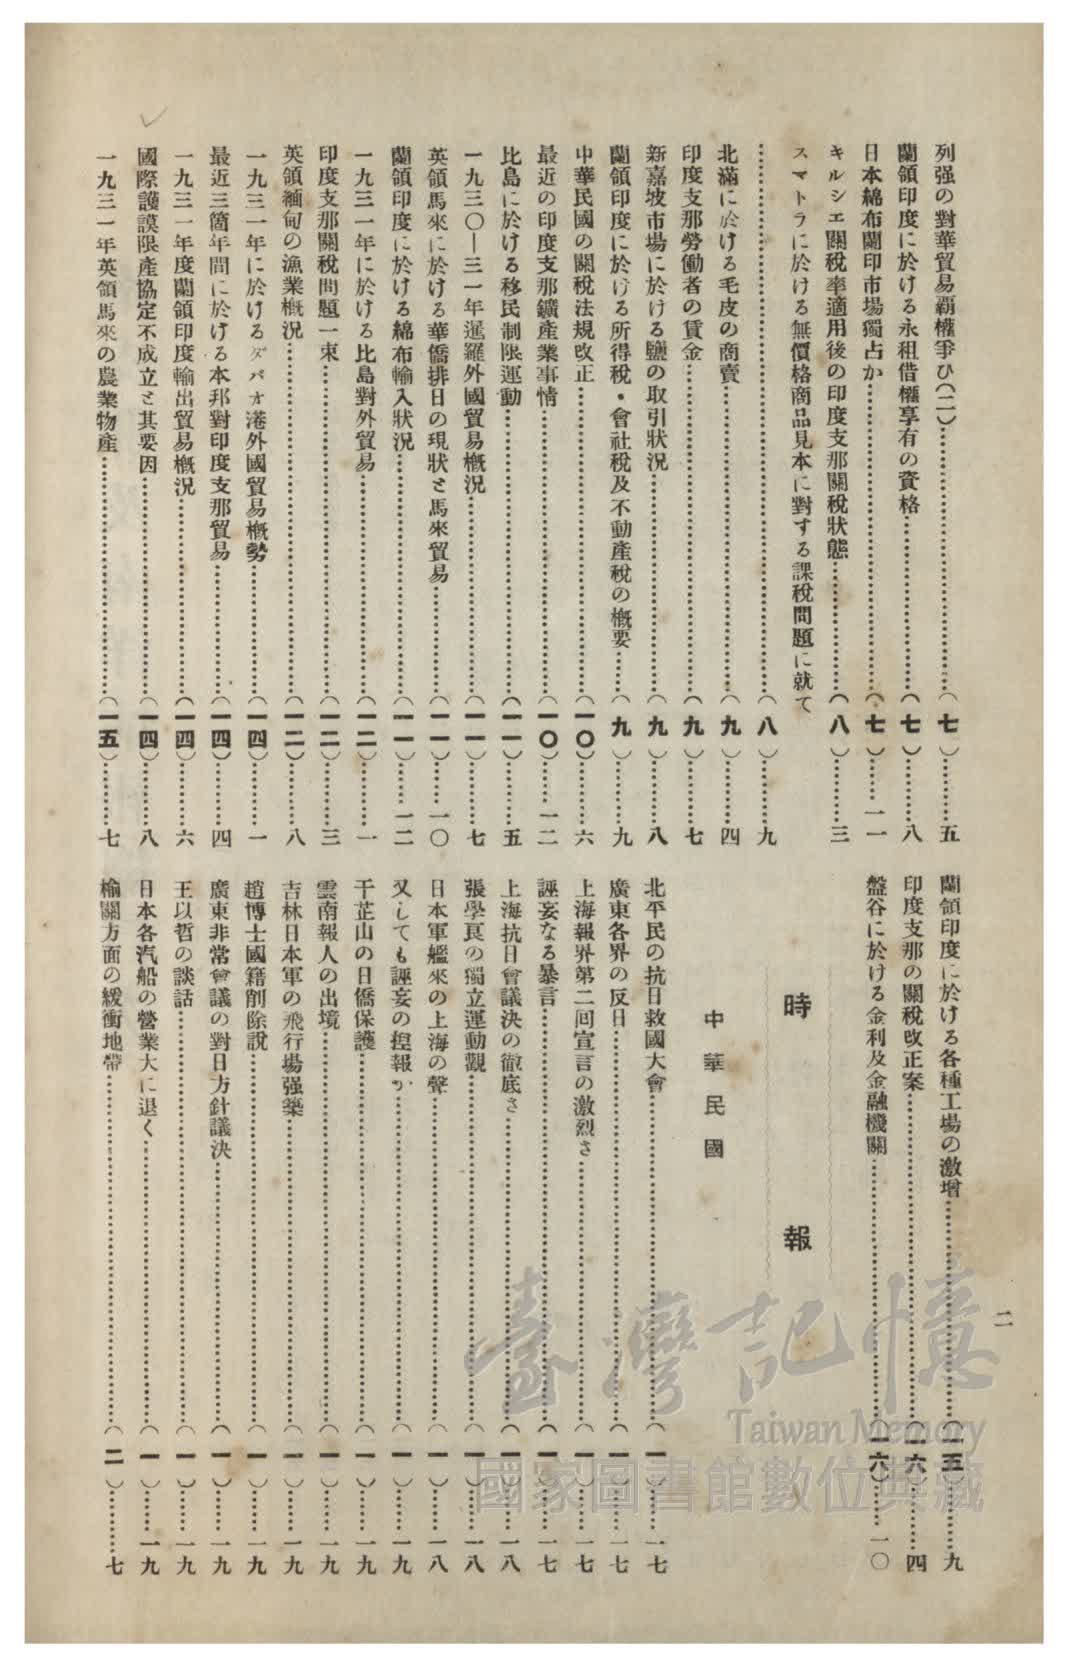 列强の對華貿易覇權爭ひ(二)…………(七)………五
蘭領印度に於ける永租借權享有の資格…………(七)………八
日本綿布蘭印市場獨占か…………(七)………一一
キルシエ關稅率適用後の印度支那關稅狀態…………(八)………三
スマトラに於ける無價格商品見本に對する課稅問題に就て
…………(八)………九
北滿に於ける毛皮の商賣…………(九)………四
印度支那勞働者の賃金…………(九)………七
新嘉坡市場に於ける鹽の取引狀況…………(九)………八
蘭領印度に於ける所得稅・會社稅及不動產稅の槪要…………(九)………九
中華民國の關稅法規改正…………(一〇)………六
最近の印度支那鑛產業事情…………(一〇)………一二
比島に於ける移民制限運動…………(一一)………五
一九三〇—三一年暹羅外國貿易槪況…………(一一)………七
英領馬來に於ける華僑排日の現狀と馬來貿易…………(一一)………一〇
蘭領印度に於ける綿布輸入狀況…………(一一)………一二
一九三一年に於ける比島對外貿易…………(一二)………一
印度支那關稅問題一束…………(一二)………三
英領緬甸の漁業槪況…………(一二)………八
一九三一年に於けるダバオ港外國貿易槪勢…………(一四)………一
最近三箇年間に於ける本邦對印度支那貿易…………(一四)………四
一九三一年度蘭領印度輸出貿易槪況…………(一四)………六
國際護謨限產協定不成立と其要因…………(一四)………八
一九三一年英領馬來の農業物產…………(一五)………七
蘭領印度に於ける各種工場の激增…………(一五)………九
印度支那の關稅改正案…………(一六)………四
盤谷に於ける金利及金融機關…………(一六)………一〇
時報
中華民國
北平民の抗日救國大會…………(一)………一七
廣東各界の反日…………(一)………一七
上海報界第二回宣言の激烈さ…………(一)………一七
誣妄なる暴言…………(一)………一七
上海抗日會議決の徹底さ…………(一)………一八
張學良の獨立運動觀…………(一)………一八
日本軍艦來の上海の聲…………(一)………一八
又しても誣妄の揑報か…………(一)………一九
干芷山の日僑保護…………(一)………一九
雲南報人の出境…………(一)………一九
吉林日本軍の飛行場强築…………(一)………一九
趙博士國籍削除說…………(一)………一九
廣東非常會議の對日方針議決…………(一)………一九
王以哲の談話…………(一)………一九
日本各汽船の營業大に退く…………(一)………一九
楡關方面の緩衝地帶…………(二)………七
二
臺灣記憶
Taiwan Memory
國家圖書館數位典藏